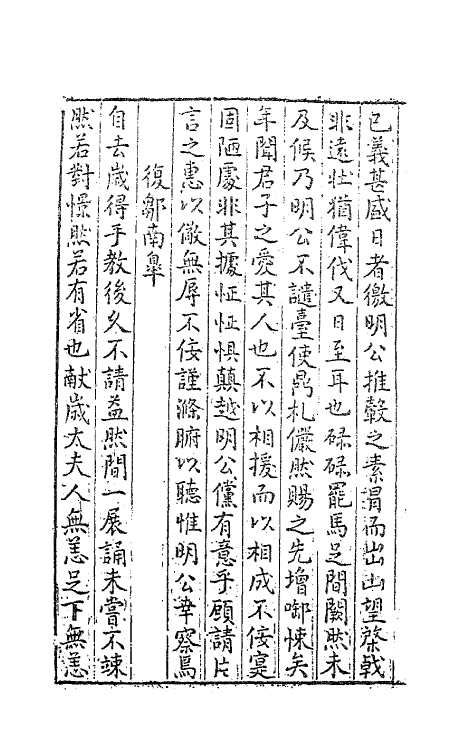 已義甚盛日者徼明公推轂之素謂而出凼望棨戟
非遠壮猶偉伐又日至耳也碌碌罷馬足間闕然未
及候乃明公不譴臺使鼎札儼然賜之先增唧悚矣
年聞君子之愛其人也不以相援而以相成不佞寔
固陋處非其據怔怔惧顛越明公儻有意乎顧請片
言之惠以儆無辱不佞謹滌腑以聽惟明公幸察焉
復鄒南臯
自去歲得手教後久不請益然間一展誦未嘗不竦
然若對憬然若有省也献歲太夫人無恙足下無恙